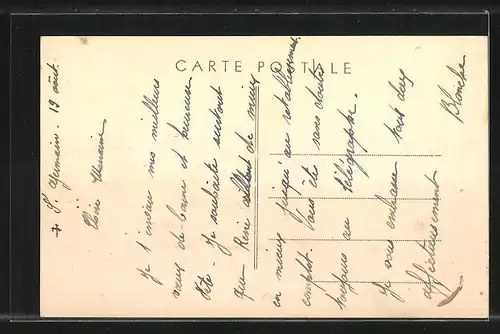 CARTE POSTALE
St Germain. 13 août.
Chère
Je t'envoie mes meilleurs
vœux de bonne et heureuse
fête - Je souhaite surtout
que René aille de mieux
en mieux jusqu'au rétablissement
complet. Vous été sans doute
toujours au télégraphe.
Je vous embrasse tous deux
affectueusement
Blanche